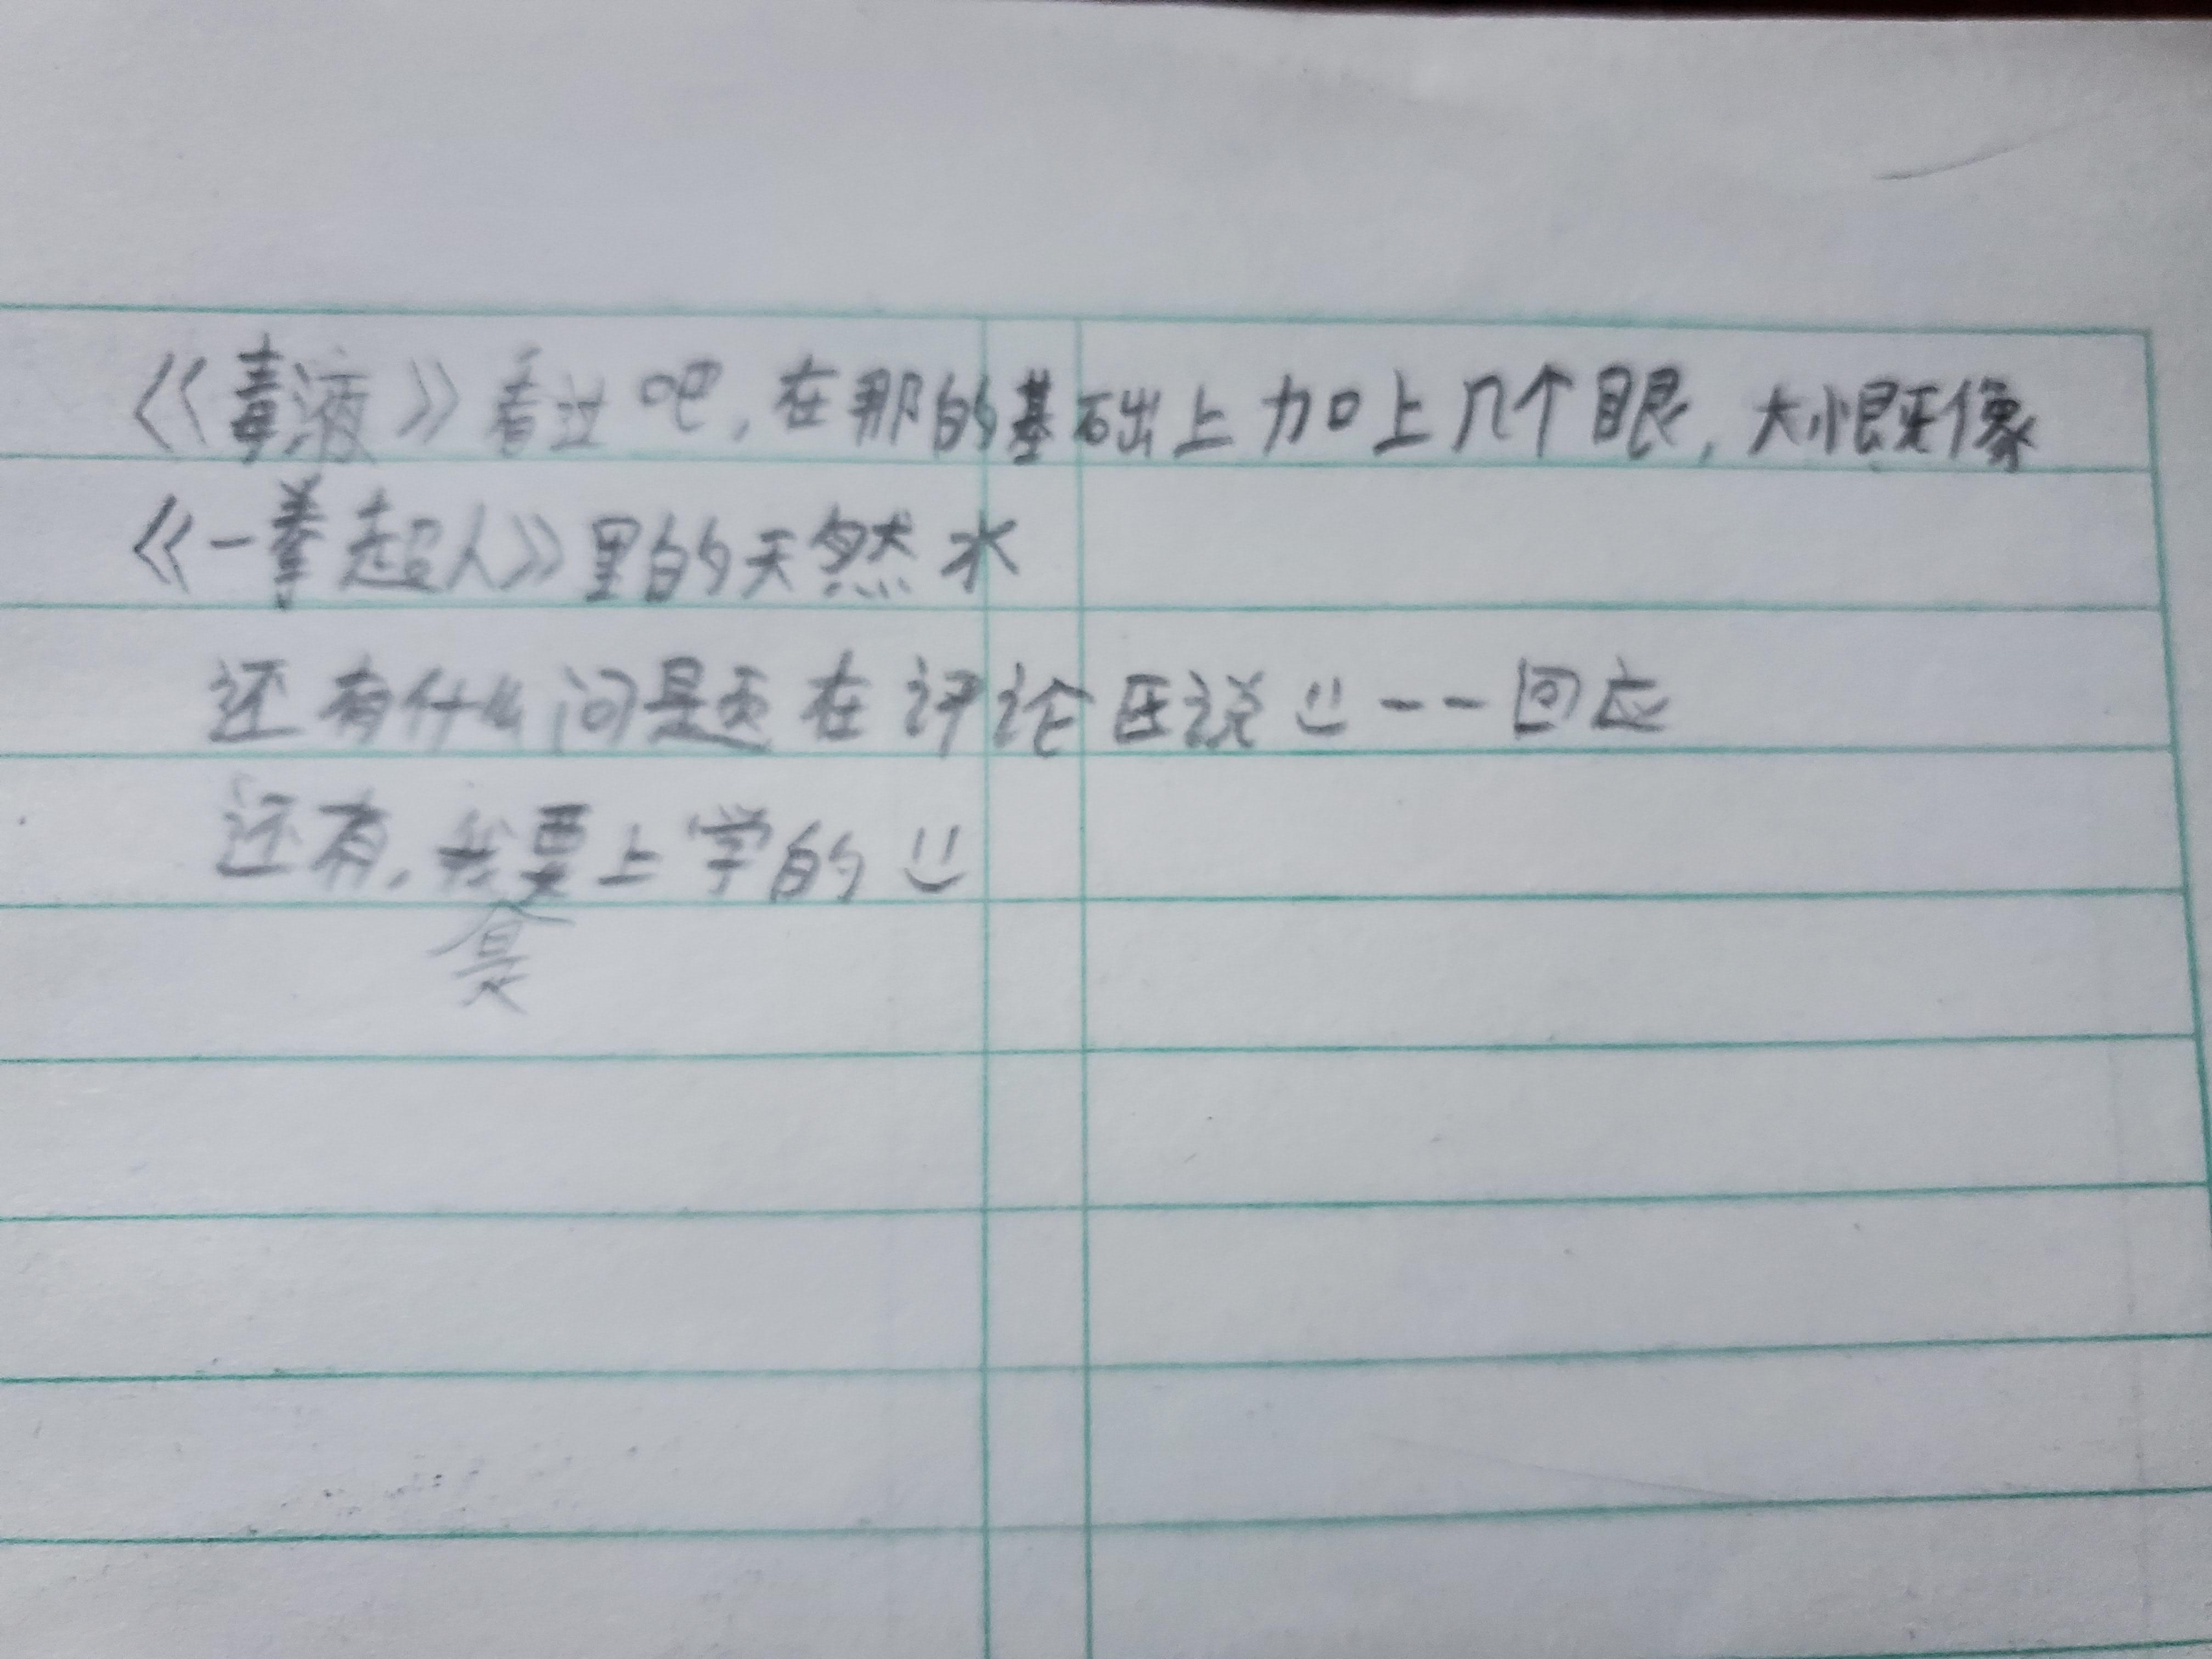 《毒液》看过吧,在那的基础上加上几个眼,大概像
《一拳超人》里的天然水
还有什么问题在评论区说 一一回应
还有,我要上学的
食